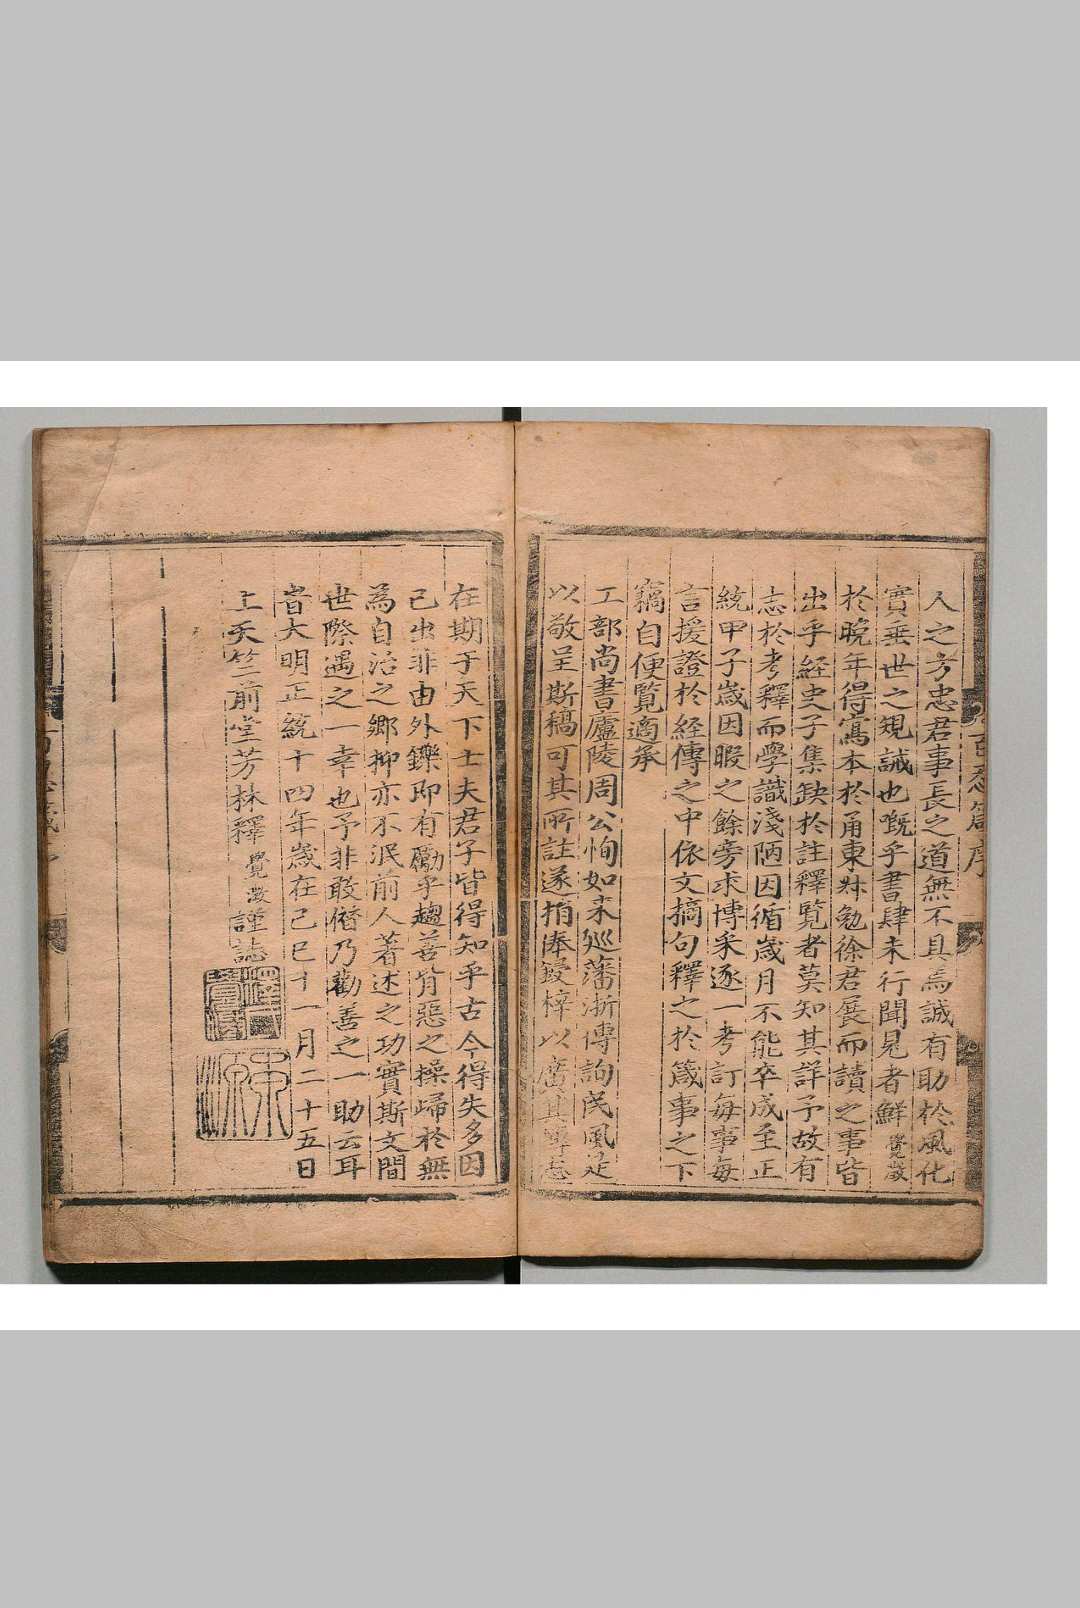 百忍箴序
人之方忠君事長之道無不具焉誠有助於風化
實垂世之規誡也嘅乎書肆未行聞見者鮮覺澂
於晚年得寫本於甬東
勉徐君展而讀之事皆
出乎經史子集缺於註釋覽者莫知其詳予故有
志於考釋而學識淺陋因循歲月不能卒成至正
統甲子歲因暇之餘旁求博采逐一考訂每事每
言援證於經傳之中依文摘句釋之於箴事之下
竊自便覽適承
工部尚書廬陵周公恂如來巡藩浙博詢民風遂
以敬呈斯稿可其所註遂捐俸鋟梓以廣其傳忍
在期于天下士夫君子皆得知乎古今得失多因
己出非由外鑠即有勵乎趨善背惡之操歸於無
為自治之鄉抑亦不泯前人著述之功實斯文間
世際遇之一幸也予非敢僭乃勸善之一助云耳
旹大明正統十四年歲在己巳十一月二十五日
上天竺前堂芳林釋覺澂謹誌